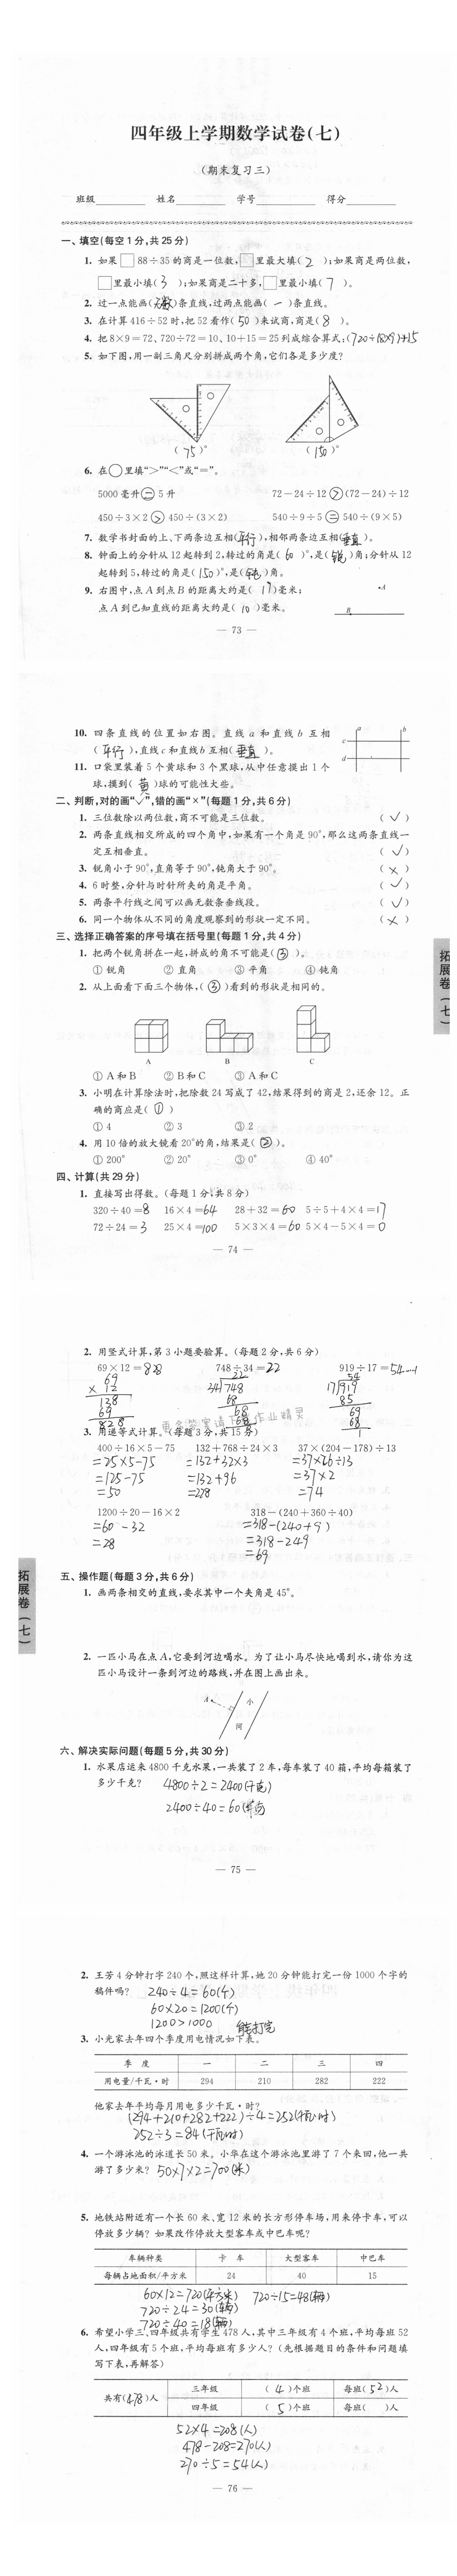 四年级上学期数学试卷(七)
(期末复习三)
班级 姓名 学号 得分
一、填空(每空1分,共25分)
1. 如果□88÷35的商是一位数,□里最大填( 2 );如果商是两位数,
□里最小填( 3 );如果商是二十多,□里最小填( 7 )。
2. 过一点能画(无数)条直线,过两点能画( 一 )条直线。
3. 在计算416÷52时,把52看作( 50 )来试商,商是( 8 )。
4. 把8×9=72、720÷72=10、10+15=25列成综合算式:(720÷(8×9)+15
5. 如下图,用一副三角尺分别拼成两个角,它们各是多少度?
( 75 )° ( 150 )°
6. 在○里填“>”“<”或“=”。
5000毫升=5升 72-24÷12>(72-24)÷12
450÷3×2>450÷(3×2) 540÷9÷5=540÷(9×5)
7. 数学书封面的上、下两条边互相(平行),相邻两条边互相(垂直)。
8. 钟面上的分针从12起转到2,转过的角是( 60 )°,是( 锐 )角;分针从12
起转到5,转过的角是( 150 )°,是( 钝 )角。
9. 右图中,点A到点B的距离大约是( 17 )毫米;
点A到已知直线的距离大约是( 10 )毫米。
A
B
— 73 —
10. 四条直线的位置如右图。直线a和直线b互相
( 平行 ),直线c和直线b互相( 垂直 )。
a b
c
d
11. 口袋里装着5个黄球和3个黑球,从中任意摸出1个
球,摸到( 黄 )球的可能性大些。
二、判断,对的画“√”,错的画“×”(每题1分,共6分)
1. 三位数除以两位数,商不可能是三位数。 ( √ )
2. 两条直线相交所成的四个角中,如果有一个角是90°,那么这两条直线一
定互相垂直。 ( √ )
3. 锐角小于90°,直角等于90°,钝角大于90°。 ( × )
4. 6时整,分针与时针所夹的角是平角。 ( √ )
5. 两条平行线之间可以画无数条垂线段。 ( √ )
6. 同一个物体从不同的角度观察到的形状一定不同。 ( × )
三、选择正确答案的序号填在括号里(每题1分,共4分)
1. 把两个锐角拼在一起,拼成的角不可能是( ③ )。
① 锐角 ② 直角 ③ 平角 ④ 钝角
2. 从上面看下面三个物体,( ③ )看到的形状是相同的。
A B C
① A和B ② B和C ③ A和C
3. 小明在计算除法时,把除数24写成了42,结果得到的商是2,还余12。正
确的商应是( ① )
① 4 ② 3 ③ 2
4. 用10倍的放大镜看20°的角,结果是( ② )。
① 200° ② 20° ③ 0° ④ 40°
四、计算(共29分)
1. 直接写出得数。(每题1分,共8分)
320÷40=8 16×4=64 28+32=60 5÷5+4×4=17
72÷24=3 25×4=100 5×3×4=60 5×4-5×4=0
— 74 —
拓展卷(七)
2. 用竖式计算,第3小题要验算。(每题2分,共6分)
69×12=828 748÷34=22 919÷17=54……1
69 22 54
×12 34748 17919
138 68 85
69 68 69
828 68 68
1
更多答案请下载作业精灵
3. 用递等式计算。(每题3分,共15分)
400÷16×5-75 132+768÷24×3 37×(204-178)÷13
=25×5-75 =132+32×3 =37×26÷13
=125-75 =132+96 =37×2
=50 =228 =74
1200÷20-16×2 318-(240+360÷40)
=60-32 =318-(240+9)
=28 =318-249
=69
拓展卷(七)
五、操作题(每题3分,共6分)
1. 画两条相交的直线,要求其中一个夹角是45°。
2. 一匹小马在点A,它要到河边喝水。为了让小马尽快地喝到水,请你为这
匹小马设计一条到河边的路线,并在图上画出来。
A 小
河
六、解决实际问题(每题5分,共30分)
1. 水果店运来4800千克水果,一共装了2车,每车装了40箱,平均每箱装了
多少千克? 4800÷2=2400(千克)
2400÷40=60(千克)
— 75 —
2. 王芳4分钟打字240个,照这样计算,她20分钟能打完一份1000个字的
稿件吗? 240÷4=60(个)
60×20=1200(个)
1200>1000 能打完
3. 小光家去年四个季度用电情况如下表。
季度 一 二 三 四
用电量/千瓦·时 294 210 282 222
他家去年平均每月用电多少千瓦·时?
(294+210+282+222)÷4=252(千瓦时)
252÷3=84(千瓦时)
4. 一个游泳池的泳道长50米。小华在这个游泳池里游了7个来回,他一共
游了多少米? 50×7×2=700(米)
5. 地铁站附近有一个长60米、宽12米的长方形停车场,用来停卡车,可以
停放多少辆?如果改作停放大型客车或中巴车呢?
车辆种类 卡车 大型客车 中巴车
每辆占地面积/平方米 24 40 15
60×12=720(平方米) 720÷15=48(辆)
720÷24=30(辆)
720÷40=18(辆)
6. 希望小学三、四年级共有学生478人,其中三年级有4个班,平均每班52
人,四年级有5个班,平均每班有多少人?(先根据题目的条件和问题填
写下表,再解答)
共有(478)人 三年级 ( 4 )个班 每班( 52 )人
四年级 ( 5 )个班 每班( )人
52×4=208(人)
478-208=270(人)
270÷5=54(人)
— 76 —